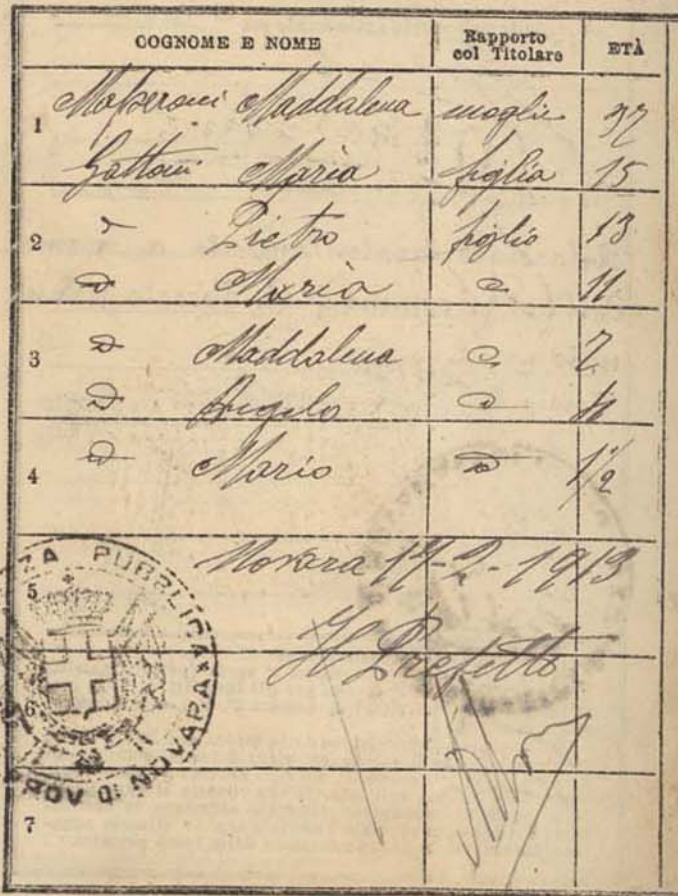 COGNOME E NOME Rapporto col Titolare ETÀ
1 Masseroni Maddalena moglie 37
Gattoni Maria figlia 15
2 " Pietro figlio 13
" Maria " 11
3 " Maddalena " 7
" Angelo " 4
4 " Mario " 1 1/2
Novara 17-2-1913
5
Il Prefetto
6
7
PUBBLICA
PROV DI NOVARA